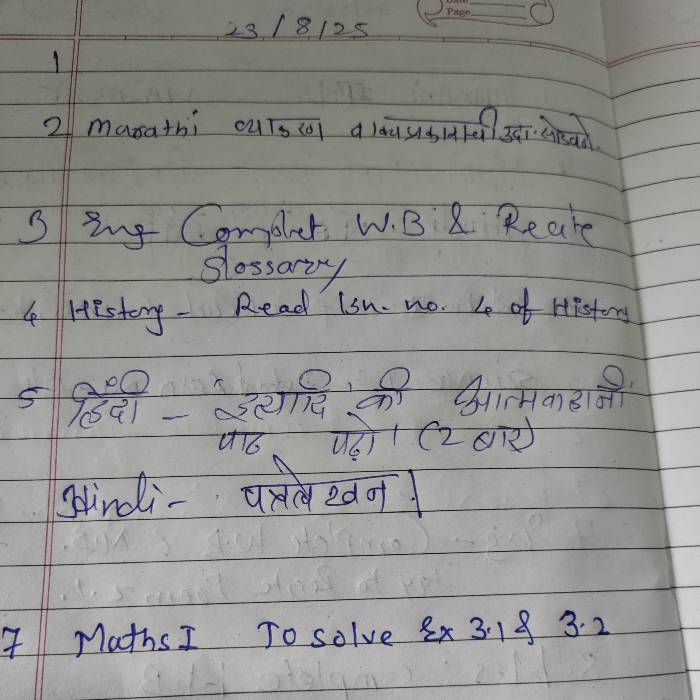 Page
23/8/25
1
2 Marathi व्याकरण वाक्यप्रकाराची उदा. सोडवणे.
3 Eng Complet. W.B & Reate
Glossarry
4 History - Read lsn. no. 4 of History
5 हिंदी - "इत्यादि' की आत्मकहानी
पाठ पढ़ो। (2 बार)
Hindi - पत्रलेखन।
7 Maths I To solve Ex 3.1 & 3.2